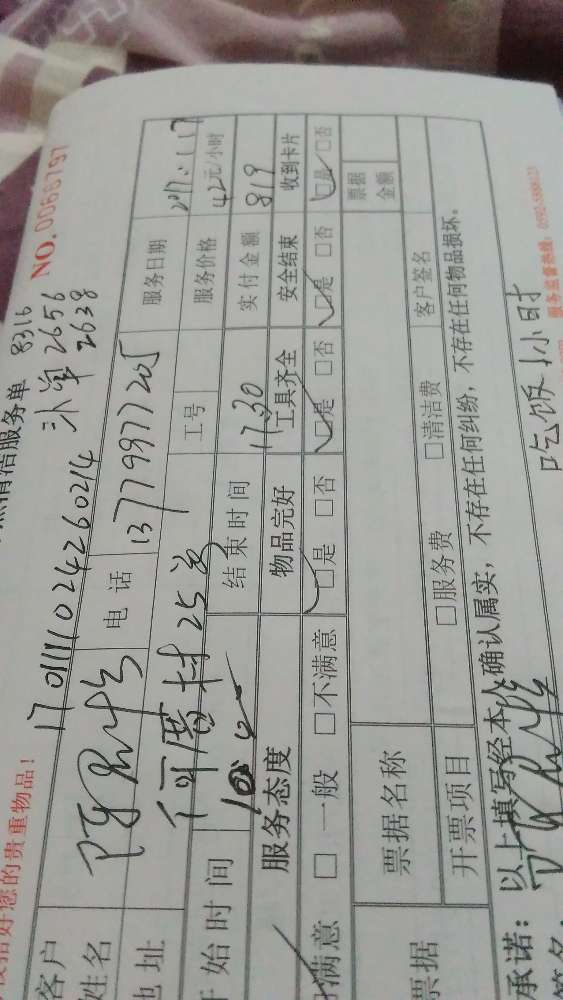 好您的贵重物品!
清洁服务单 8316
NO.0066797
170111102426024 补单 2656
2638
客户
姓名
电话 13779977205
服务日期 2017.1.17
地址 何厝村25号
工号
服务价格 42元/小时
开始时间
结束时间 17.30
实付金额 819
服务态度 物品完好 工具齐全 安全结束 收到卡片
满意 □ 一般 □不满意 □是 □否 □是 □否 □是 □否 □是 □否
票据
票据名称
客户签名
票据
金额
开票项目 □服务费 □清洁费
承诺: 以上填写经本人确认属实,不存在任何纠纷,不存在任何物品损坏。
签名:
吃饭1小时
服务监督热线: 0592-5888623